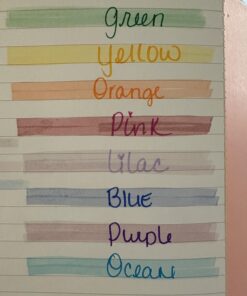 Green
Yellow
Orange
Pink
Lilac
BLUE
Purple
Ocean